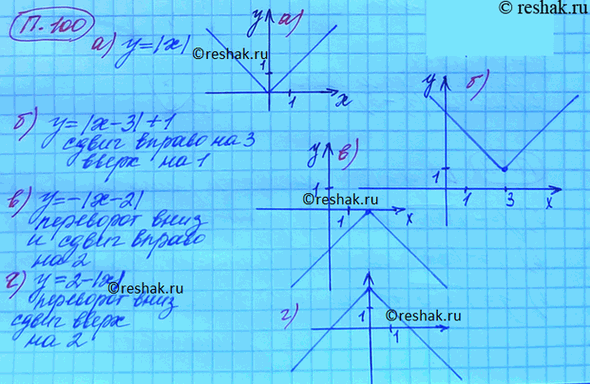 © reshak.ru
П.100
а) y=|x|
y а)
©reshak.ru
1
1 x
y б)
1
1 3 x
б) y=|x-3|+1
сдвиг вправо на 3
вверх на 1
y в)
1
©reshak.ru
1 x
в) y=-|x-2|
переворот вниз
и сдвиг вправо
на 2
г) y=2-|x|
переворот вниз
©reshak.ru
сдвиг вверх
на 2
г)
1
©reshak.ru
1